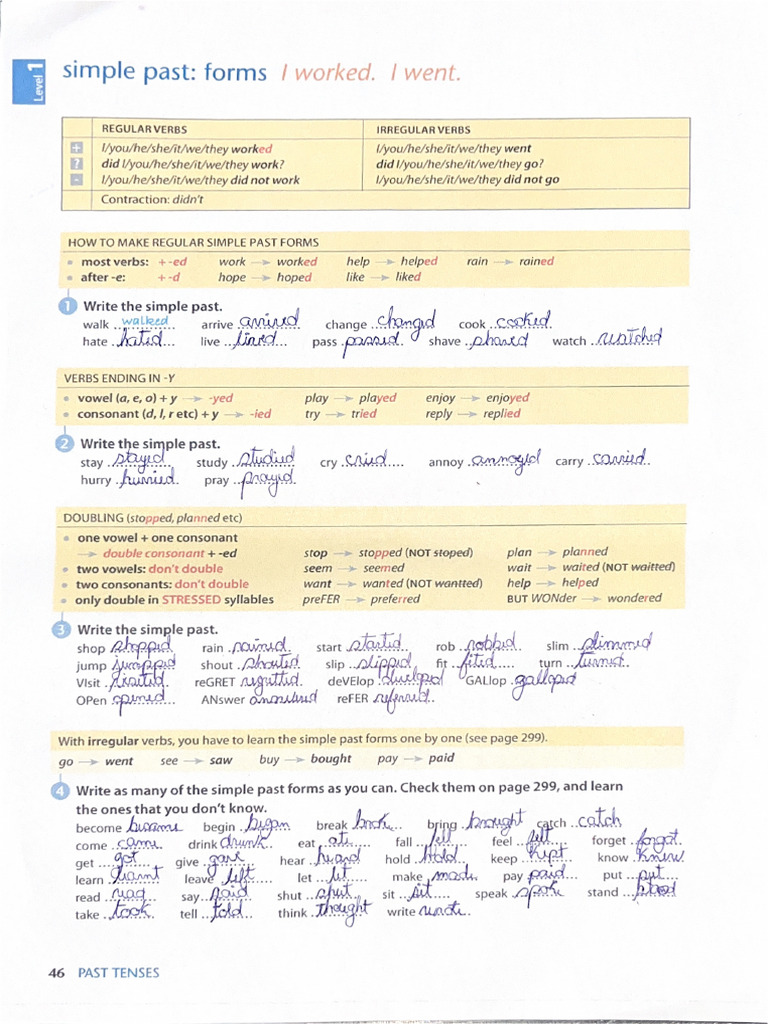 Level 1
simple past: forms I worked. I went.
REGULAR VERBS IRREGULAR VERBS
+ I/you/he/she/it/we/they worked I/you/he/she/it/we/they went
? did I/you/he/she/it/we/they work? did I/you/he/she/it/we/they go?
- I/you/he/she/it/we/they did not work I/you/he/she/it/we/they did not go
Contraction: didn't
HOW TO MAKE REGULAR SIMPLE PAST FORMS
• most verbs: + -ed work → worked help → helped rain → rained
• after -e: + -d hope → hoped like → liked
1 Write the simple past.
walk walked arrive arrived change changed cook cooked
hate hated live lived pass passed shave shaved watch watched
VERBS ENDING IN -Y
• vowel (a, e, o) + y → -yed play → played enjoy → enjoyed
• consonant (d, l, r etc) + y → -ied try → tried reply → replied
2 Write the simple past.
stay stayed study studied cry cried annoy annoyed carry carried
hurry hurried pray prayed
DOUBLING (stopped, planned etc)
• one vowel + one consonant
→ double consonant + -ed stop → stopped (NOT stoped) plan → planned
• two vowels: don't double seem → seemed wait → waited (NOT waitted)
• two consonants: don't double want → wanted (NOT wantted) help → helped
• only double in STRESSED syllables preFER → preferred BUT WONder → wondered
3 Write the simple past.
shop shopped rain rained start started rob robbed slim slimmed
jump jumpped shout shouted slip slipped fit fited turn turned
VIsit visited reGRET regretted deVElop developed GALlop galloped
OPen opened ANswer answered reFER referred
With irregular verbs, you have to learn the simple past forms one by one (see page 299).
go → went see → saw buy → bought pay → paid
4 Write as many of the simple past forms as you can. Check them on page 299, and learn
the ones that you don't know.
become begin began break broke bring brought catch catch
come came drink drunk eat ate fall fell feel felt forget forgot
get got give gave hear heard hold Hold keep kept know knew
learn learnt leave left let let make made pay paid put put
read read say said shut shut sit sit speak spoke stand stood
take took tell told think thought write wrote
46 PAST TENSES